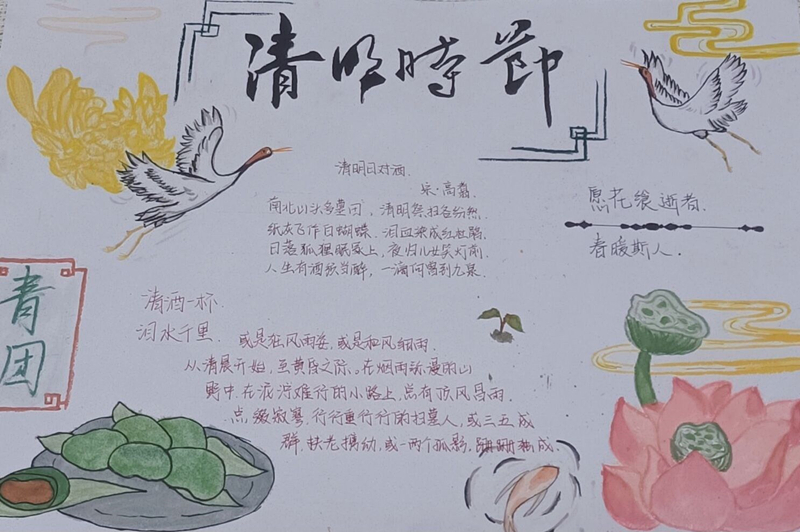 清明時節
清明日对酒
宋·高翥
南北山头多墓田，清明祭扫各纷然.
纸灰飞作白蝴蝶，泪血染成红杜鹃.
日落狐狸眠冢上，夜归儿女笑灯前.
人生有酒须当醉，一滴何曾到九泉.
愿花飨逝者.
春暖斯人.
青团
清酒一杯.
泪水千里.
或是狂风雨姿，或是和风细雨.
从清晨开始，至黄昏之际。在烟雨弥漫的山
野中.在泥泞难行的小路上，总有顶风冒雨.
点缀寂寥，行行重行行的扫墓人，或三五成
群，扶老携幼，或一两个孤影，